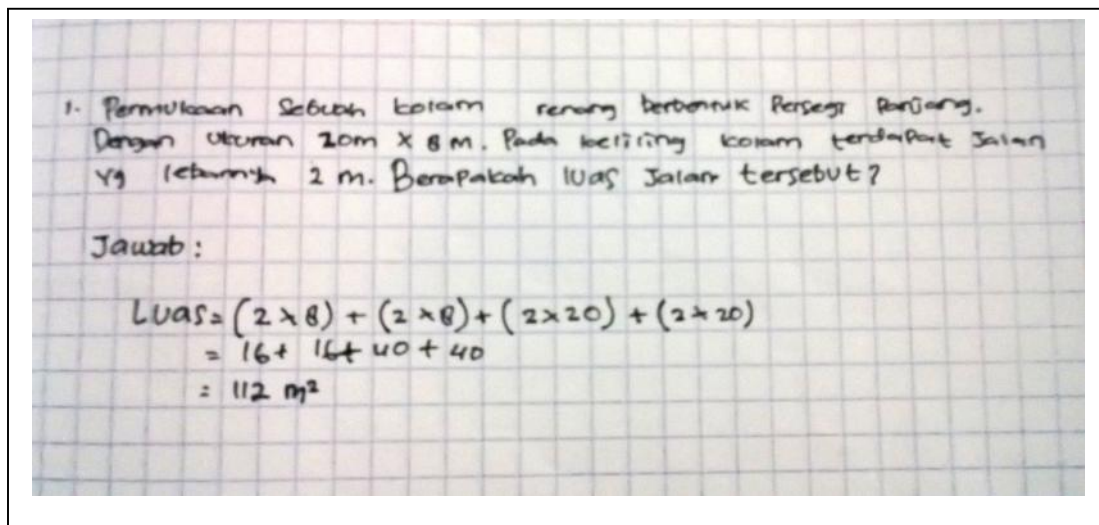 1. Permukaan Sebuah kolam renang berbentuk Persegi Panjang.
Dengan ukuran 20m x 8 m. Pada keliling kolam terdapat Jalan
yg lebarnya 2 m. Berapakah luas Jalan tersebut?
Jawab :
Luas = (2 x 8) + (2 x 8) + (2 x 20) + (2 x 20)
= 16 + 16 + 40 + 40
= 112 m²